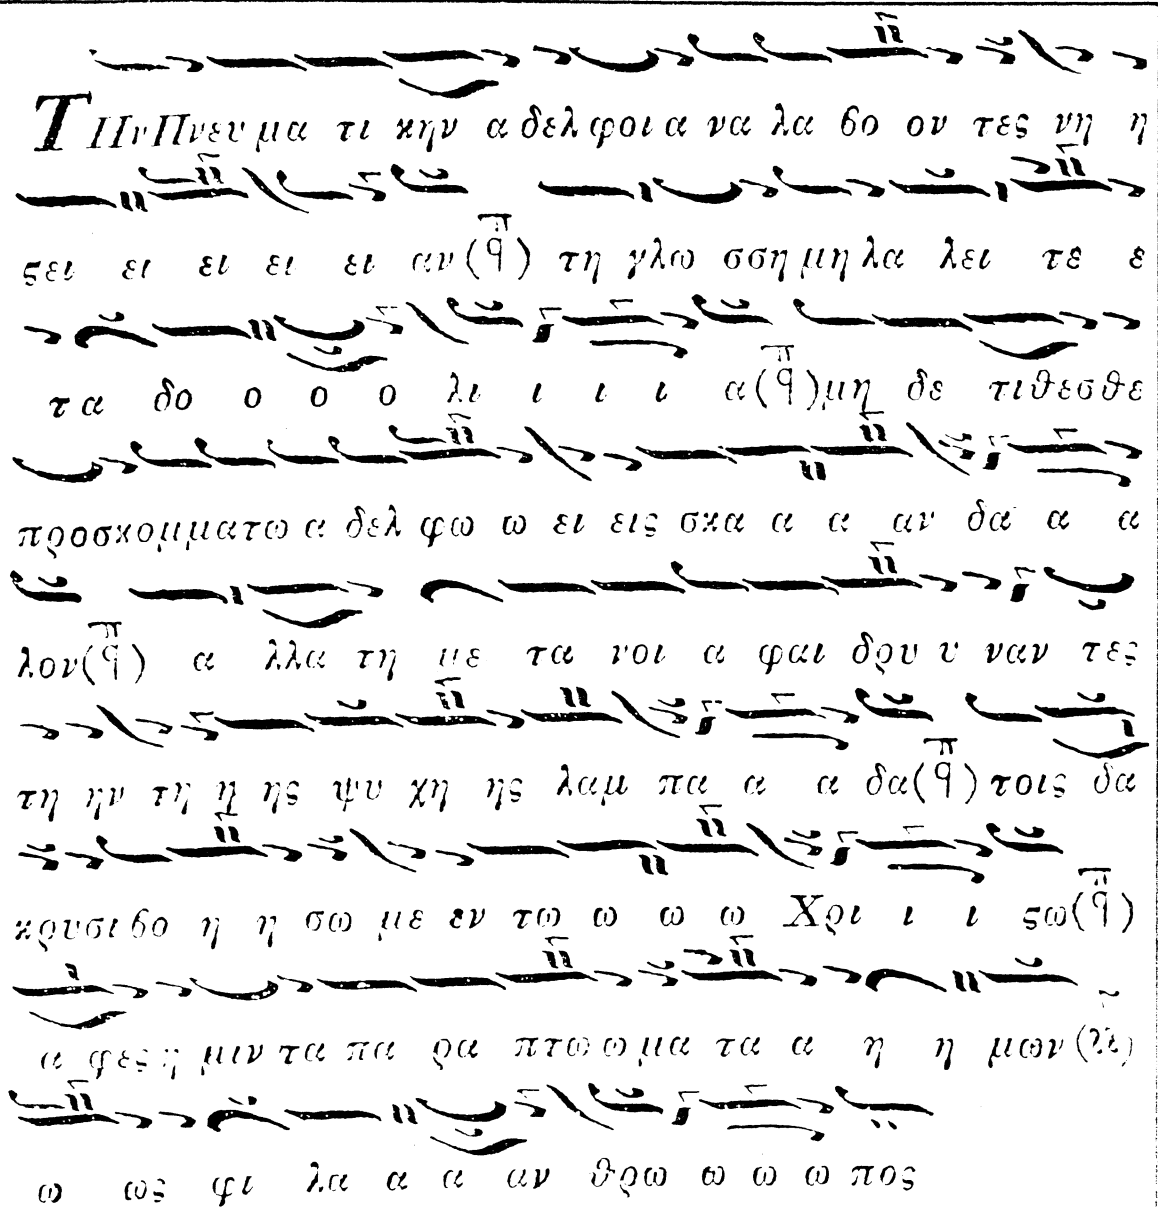 ΤΗν Πνευ μα τι κην α δελ φοι α να λα βο ον τες νη η
ςει ει ει ει ει αν (π q) τη γλω σση μη λα λει τε ε
τα δο ο ο ο λι ι ι ι α (π q) μη δε τιθεσθε
προσκομματω α δελ φω ω ει εις σκα α α αν δα α α
λον (π q) α λλα τη με τα νοι α φαι δρυ υ ναν τες
τη ην τη η ης ψυ χη ης λαμ πα α α δα (π q) τοις δα
κρυσι βο η η σω με εν τω ω ω ω Χρι ι ι ςω (π q)
α φες η μιν τα πα ρα πτω ω μα τα α η η μων
ω ως φι λα α α αν θρω ω ω ω πος